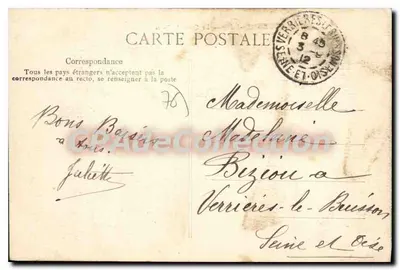 CARTE POSTALE
Correspondance
Tous les pays étrangers n'acceptent pas la
correspondance au recto, se renseigner à la poste
76
Bons Baisers
à tous
Juliette
Mademoiselle
Madeleine
Biziou a
Verrières-le-Buisson
Seine et Oise
VERRIERES-LE-BUISSON
SEINE-ET-OISE
8 45
3 - 9
12
CPA Collection